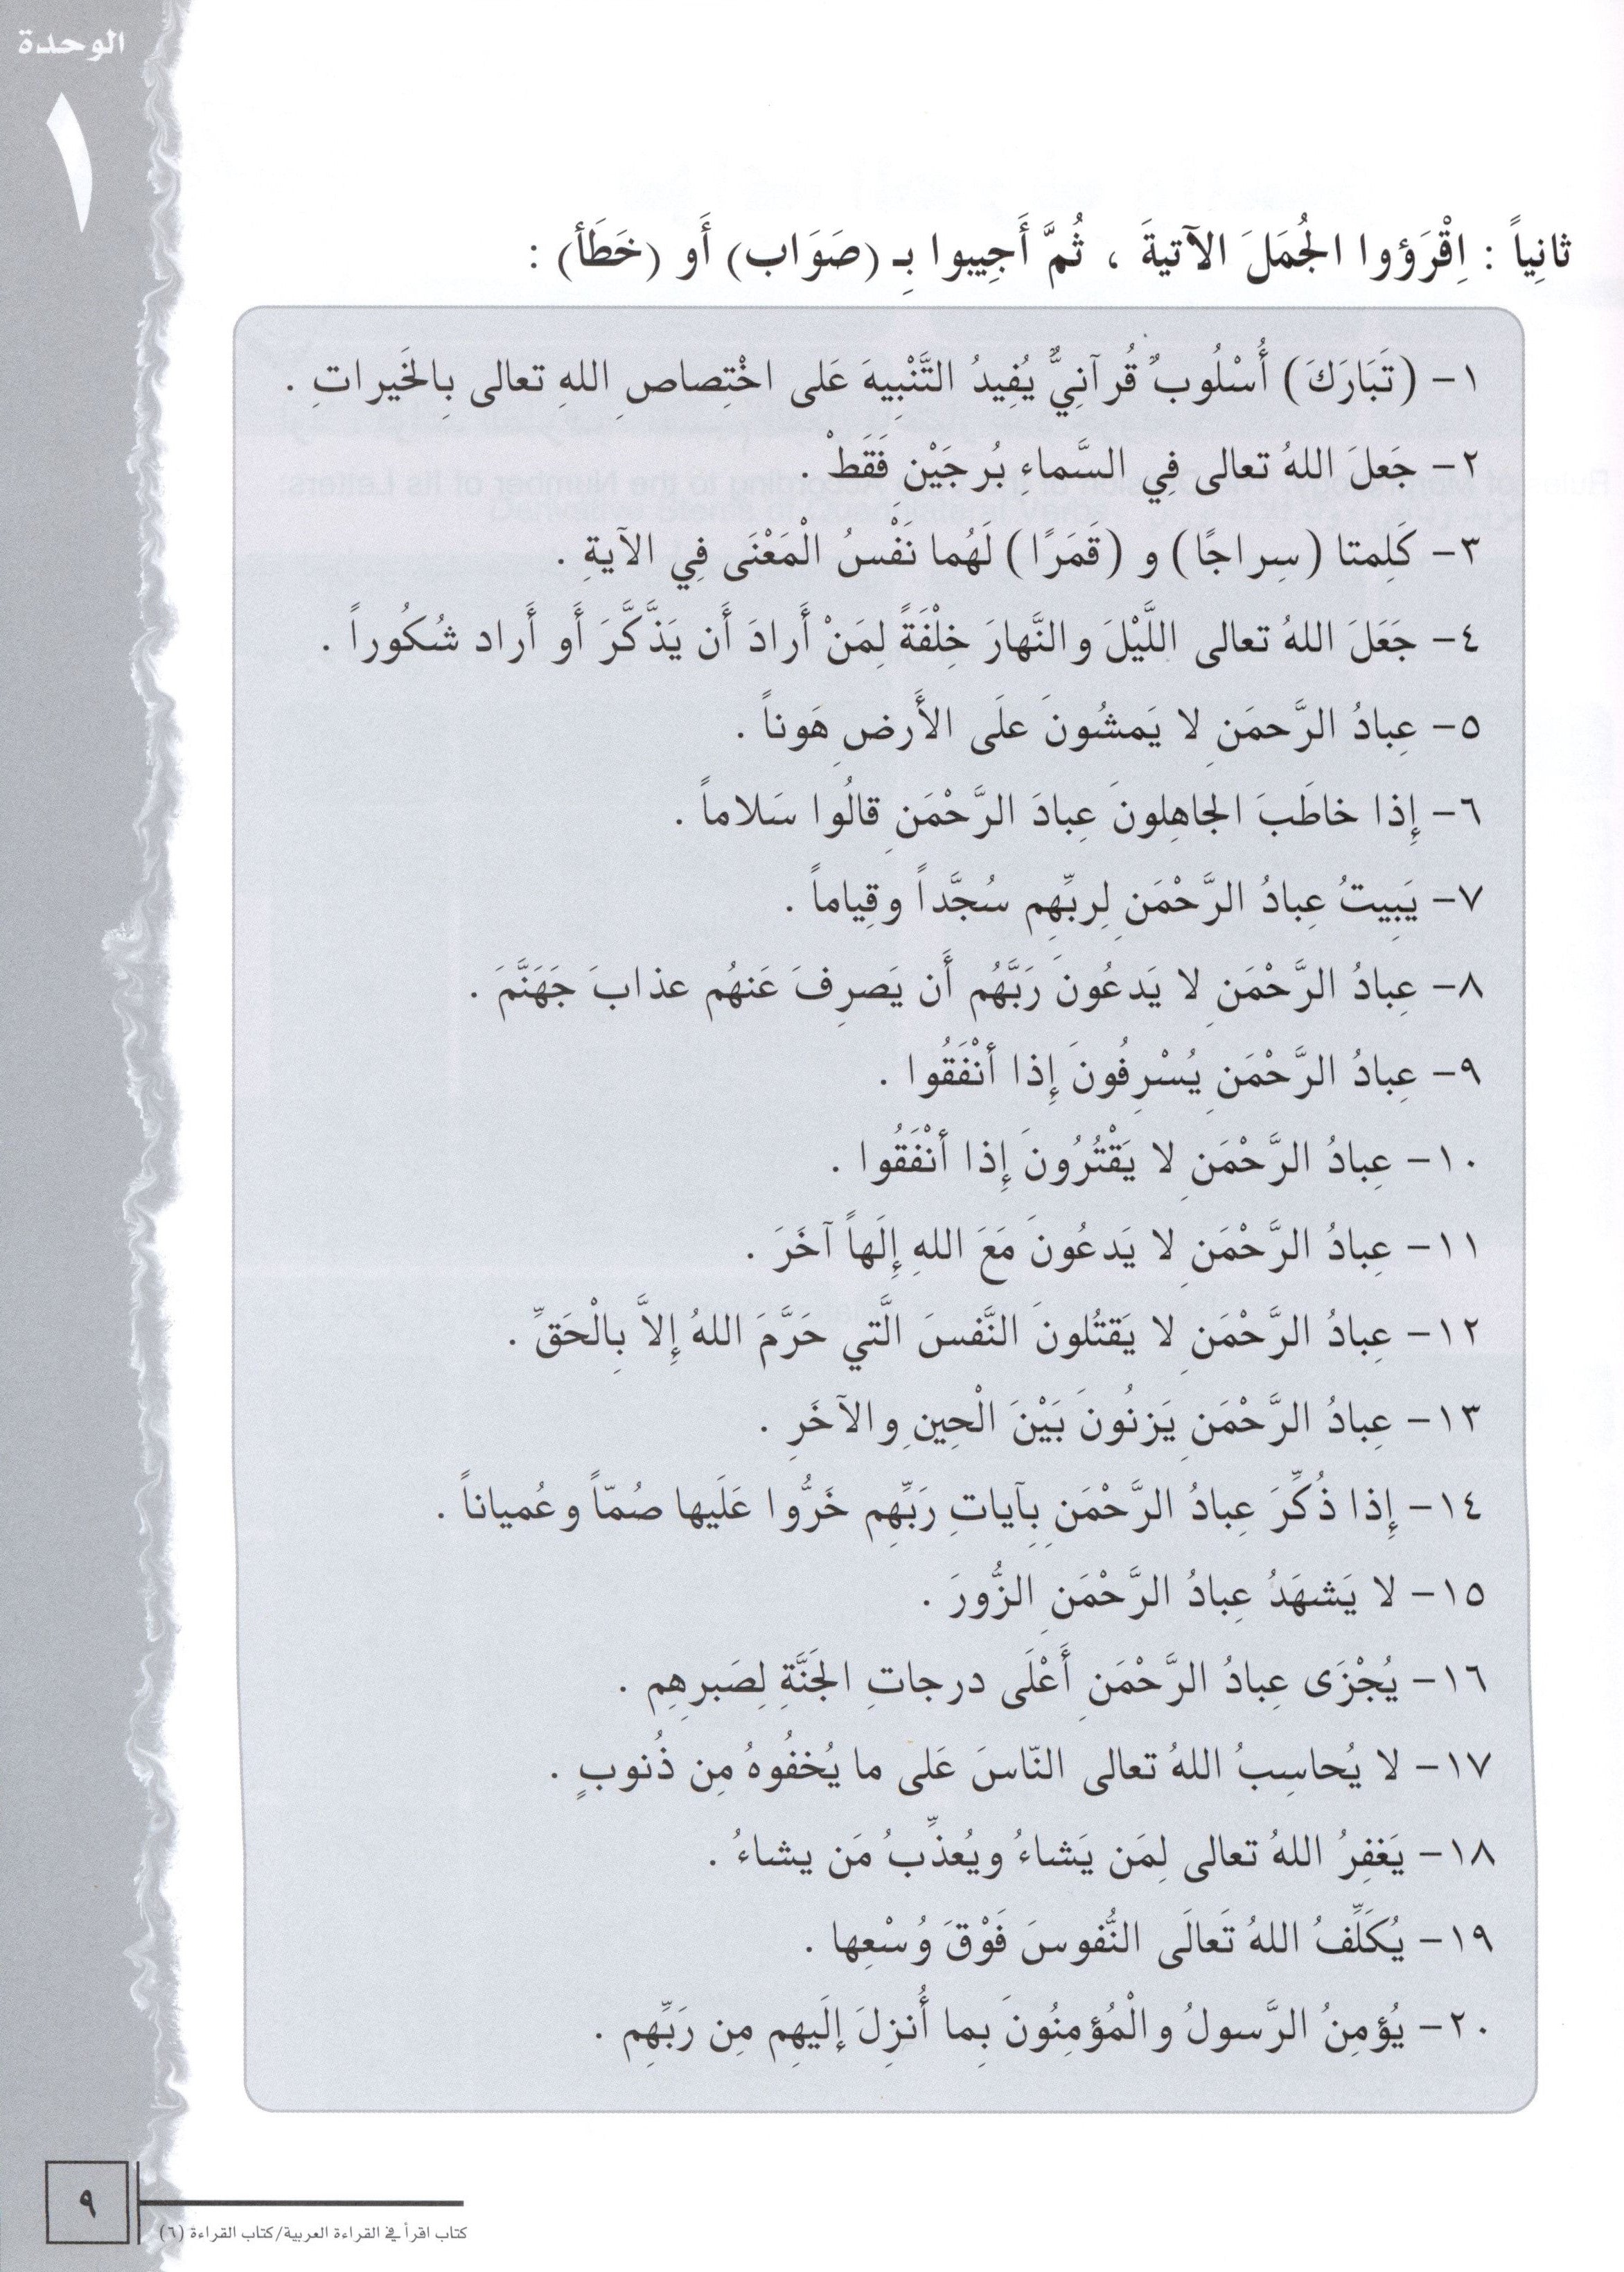 الوحدة
١
ثانِياً : اِقْرَؤوا الجُمَلَ الآتيةَ ، ثُمَّ أَجِيبوا بِـ (صَوَاب) أَو (خَطَأ) :
١- (تَبَارَكَ) أُسْلُوبٌ قُرآنِيٌّ يُفِيدُ التَّنْبِيهَ عَلى اخْتِصاصِ اللهِ تعالى بِالخَيراتِ .
٢- جَعلَ اللهُ تعالى فِي السَّماءِ بُرجَيْنِ فَقَطْ .
٣- كَلِمتا (سِراجًا) و (قَمَرًا) لَهُما نَفْسُ الْمَعْنَى فِي الآيةِ .
٤- جَعَلَ اللهُ تعالى اللَّيْلَ والنَّهارَ خِلْفَةً لِمَنْ أَرادَ أَن يَذَّكَّرَ أَو أَراد شُكُوراً .
٥- عِبادُ الرَّحمَنِ لا يَمشُونَ علَى الأَرضِ هَوناً .
٦- إِذا خاطَبَ الجاهِلونَ عِبادَ الرَّحْمَنِ قالُوا سَلاماً .
٧- يَبِيتُ عِبادُ الرَّحْمَنِ لِربِّهِم سُجَّداً وقِياماً .
٨- عِبادُ الرَّحْمَنِ لا يَدعُونَ رَبَّهُم أَن يَصرِفَ عَنهُم عذابَ جَهَنَّمَ .
٩- عِبادُ الرَّحْمَنِ يُسْرِفُونَ إِذا أنْفَقُوا .
١٠- عِبادُ الرَّحْمَنِ لا يَقْتُرُونَ إِذا أنْفَقُوا .
١١- عِبادُ الرَّحْمَنِ لا يَدعُونَ مَعَ اللهِ إِلَهاً آخَرَ .
١٢- عِبادُ الرَّحْمَنِ لا يَقتُلونَ النَّفسَ الَّتي حَرَّمَ اللهُ إِلاَّ بِالْحَقِّ .
١٣- عِبادُ الرَّحْمَنِ يَزنُونَ بَيْنَ الْحِينِ والآخَرِ .
١٤- إِذا ذُكِّرَ عِبادُ الرَّحْمَنِ بِآياتِ رَبِّهِم خَرُّوا عَلَيها صُمّاً وعُمياناً .
١٥- لا يَشهَدُ عِبادُ الرَّحْمَنِ الزُّورَ .
١٦- يُجْزَى عِبادُ الرَّحْمَنِ أَعْلَى درجاتِ الجَنَّةِ لِصَبرِهِم .
١٧- لا يُحاسِبُ اللهُ تعالى النّاسَ عَلى ما يُخفُوهُ مِن ذُنوبٍ .
١٨- يَغفِرُ اللهُ تعالى لِمَن يَشاءُ ويُعذِّبُ مَن يشاءُ .
١٩- يُكَلِّفُ اللهُ تَعالَى النُّفوسَ فَوْقَ وُسْعِها .
٢٠- يُؤمِنُ الرَّسولُ والْمُؤمِنُونَ بِما أُنزِلَ إلَيهِم مِن رَبِّهِم .
٩
كتاب اقرأ في القراءة العربية/كتاب القراءة (٦)